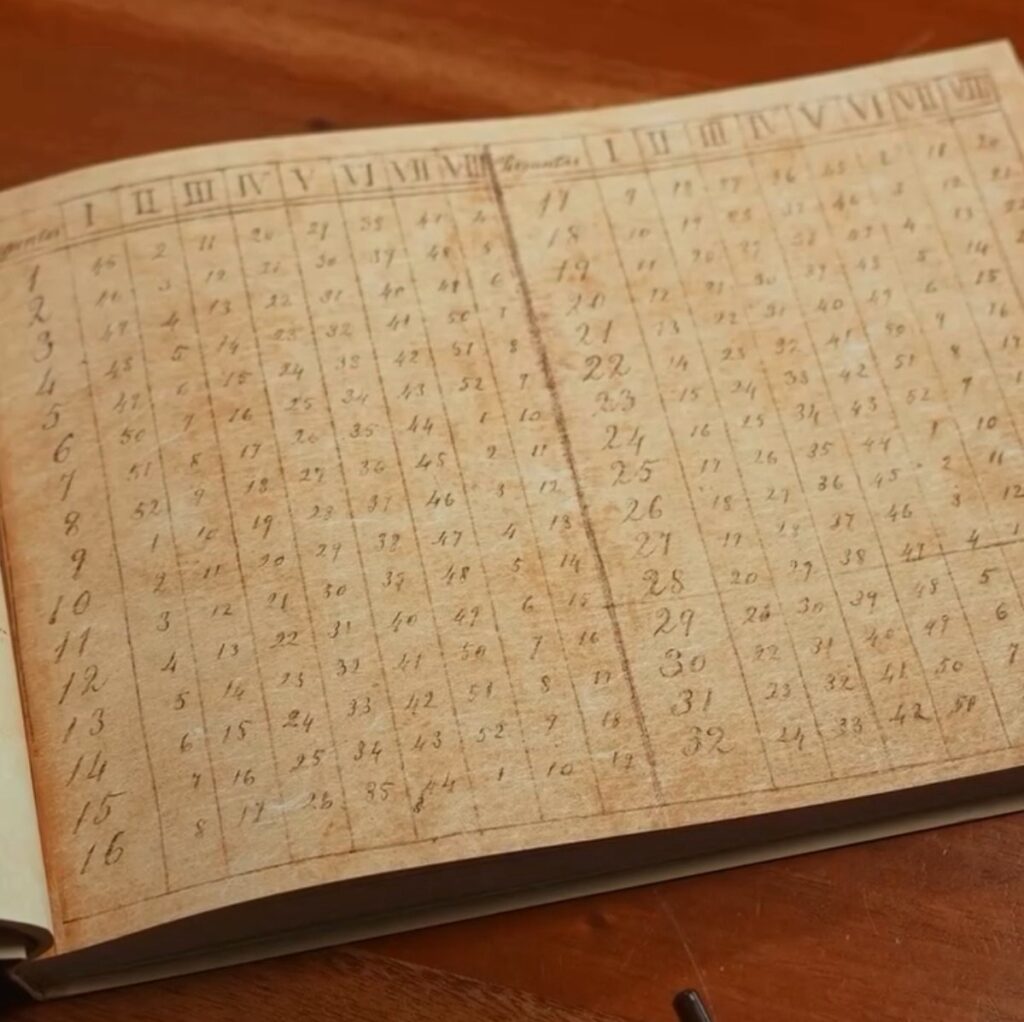 I II III IV V VI VII VIII
1 45 2 11 20 29 38 47
2 3 12 21 30 39 48 5
3 47 4 13 22 31 40 49 6
4 48 5 14 23 32 41 50 7
5 49 6 15 24 33 42 51 8
6 50 7 16 25 34 43 52 9
7 51 8 17 26 35 44 1 10
8 52 9 18 27 36 45 2 11
9 1 10 19 28 37 46 3 12
10 2 11 20 29 38 47 4 13
11 3 12 21 30 39 48 5 14
12 4 13 22 31 40 49 6 15
13 5 14 23 32 41 50 7 16
14 6 15 24 33 42 51 8 17
15 7 16 25 34 43 52 9 18
16 8 17 26 35 44 1 10 19
Preguntas I II III IV V VI VII VIII
17 9 18 27 36 45 2 11 20
18 10 19 28 37 46 3 12 21
19 11 20 29 38 47 4 13
20 12 21 30 39 48 5 14
21 13 22 31 40 49 6 15
22 14 23 32 41 50 7 16
23 15 24 33 42 51 8 17
24 16 25 34 43 52 9
25 17 26 35 44 1 10
26 18 27 36 45 2 11
27 19 28 37 46 3 12
28 20 29 38 47 4
29 21 30 39 48 5
30 22 31 40 49 6
31 23 32 41 50 7
32 24 33 42